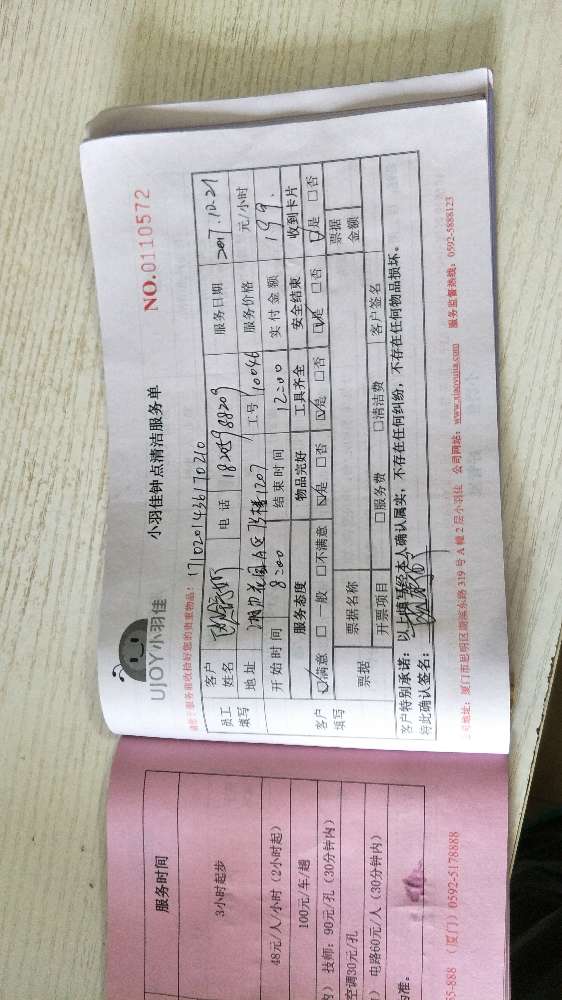 UJOY小羽佳
小羽佳钟点清洁服务单
NO.0110572
请您于服务前收拾好您的贵重物品!
171020143617 0210
员工填写 客户姓名 电话 18205988209 服务日期 2017.10.21
地址 1207 工号 10046 服务价格 元/小时
开始时间 8:00 结束时间 12:00 实付金额 199.
客户填写 服务态度 物品完好 工具齐全 安全结束 收到卡片
☑满意 □一般 □不满意 ☑是 □否 ☑是 □否 ☑是 □否 ☑是 □否
票据 票据名称 票据金额
开票项目 □服务费 □清洁费 客户签名
客户特别承诺:以上填写经本人确认属实,不存在任何纠纷,不存在任何物品损坏。
特此确认签名:
公司地址:厦门市思明区湖滨东路319号A幢2层小羽佳 公司网站:www.xiaoyujia.com 服务监督热线:0592-5888123
服务时间
3小时起步
48元/人/小时(2小时起)
100元/车/趟
内) 技师:90元/孔(30分钟内)
空调30元/孔
) 电路60元/人(30分钟内)
准。
55-888 (厦门)0592-5178888